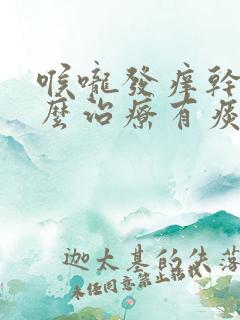 喉嚨發癢幹
麼治療有痰
迦太基的失落
未經同意禁止轉載